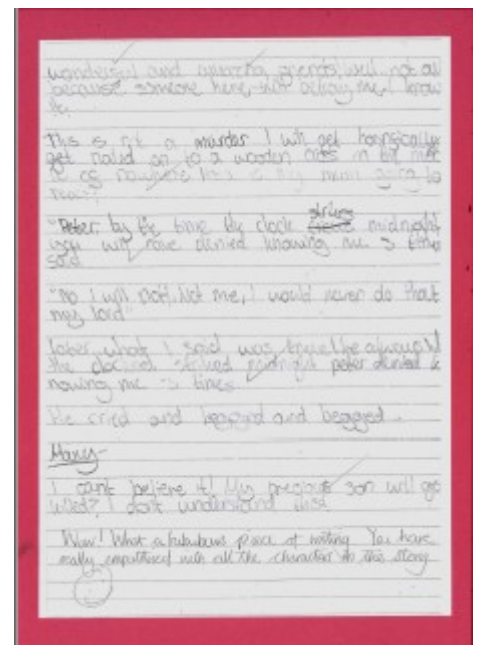 wonderful and amazing friends, well not all
because someone here will betray me, I know
it.
This is not a murder I will get horrifically
get nailed on to a wooden cross in the midd
le of nowhere how is my mum going to
react?
"Peter by the time the clock strikes midnight
you will have denied knowing me 3 times
said
"no I will not! Not me, I would never do that
my lord"
later what I said was true! he always
the clock midnight peter denied k
nowing me 3 times
He cried and begged and begged.
Mary-
I cant believe it! My precious son will get
killed? I dont understand
Wow! What a fabulous piece of writing. You have
really empathised with all the characters in this story